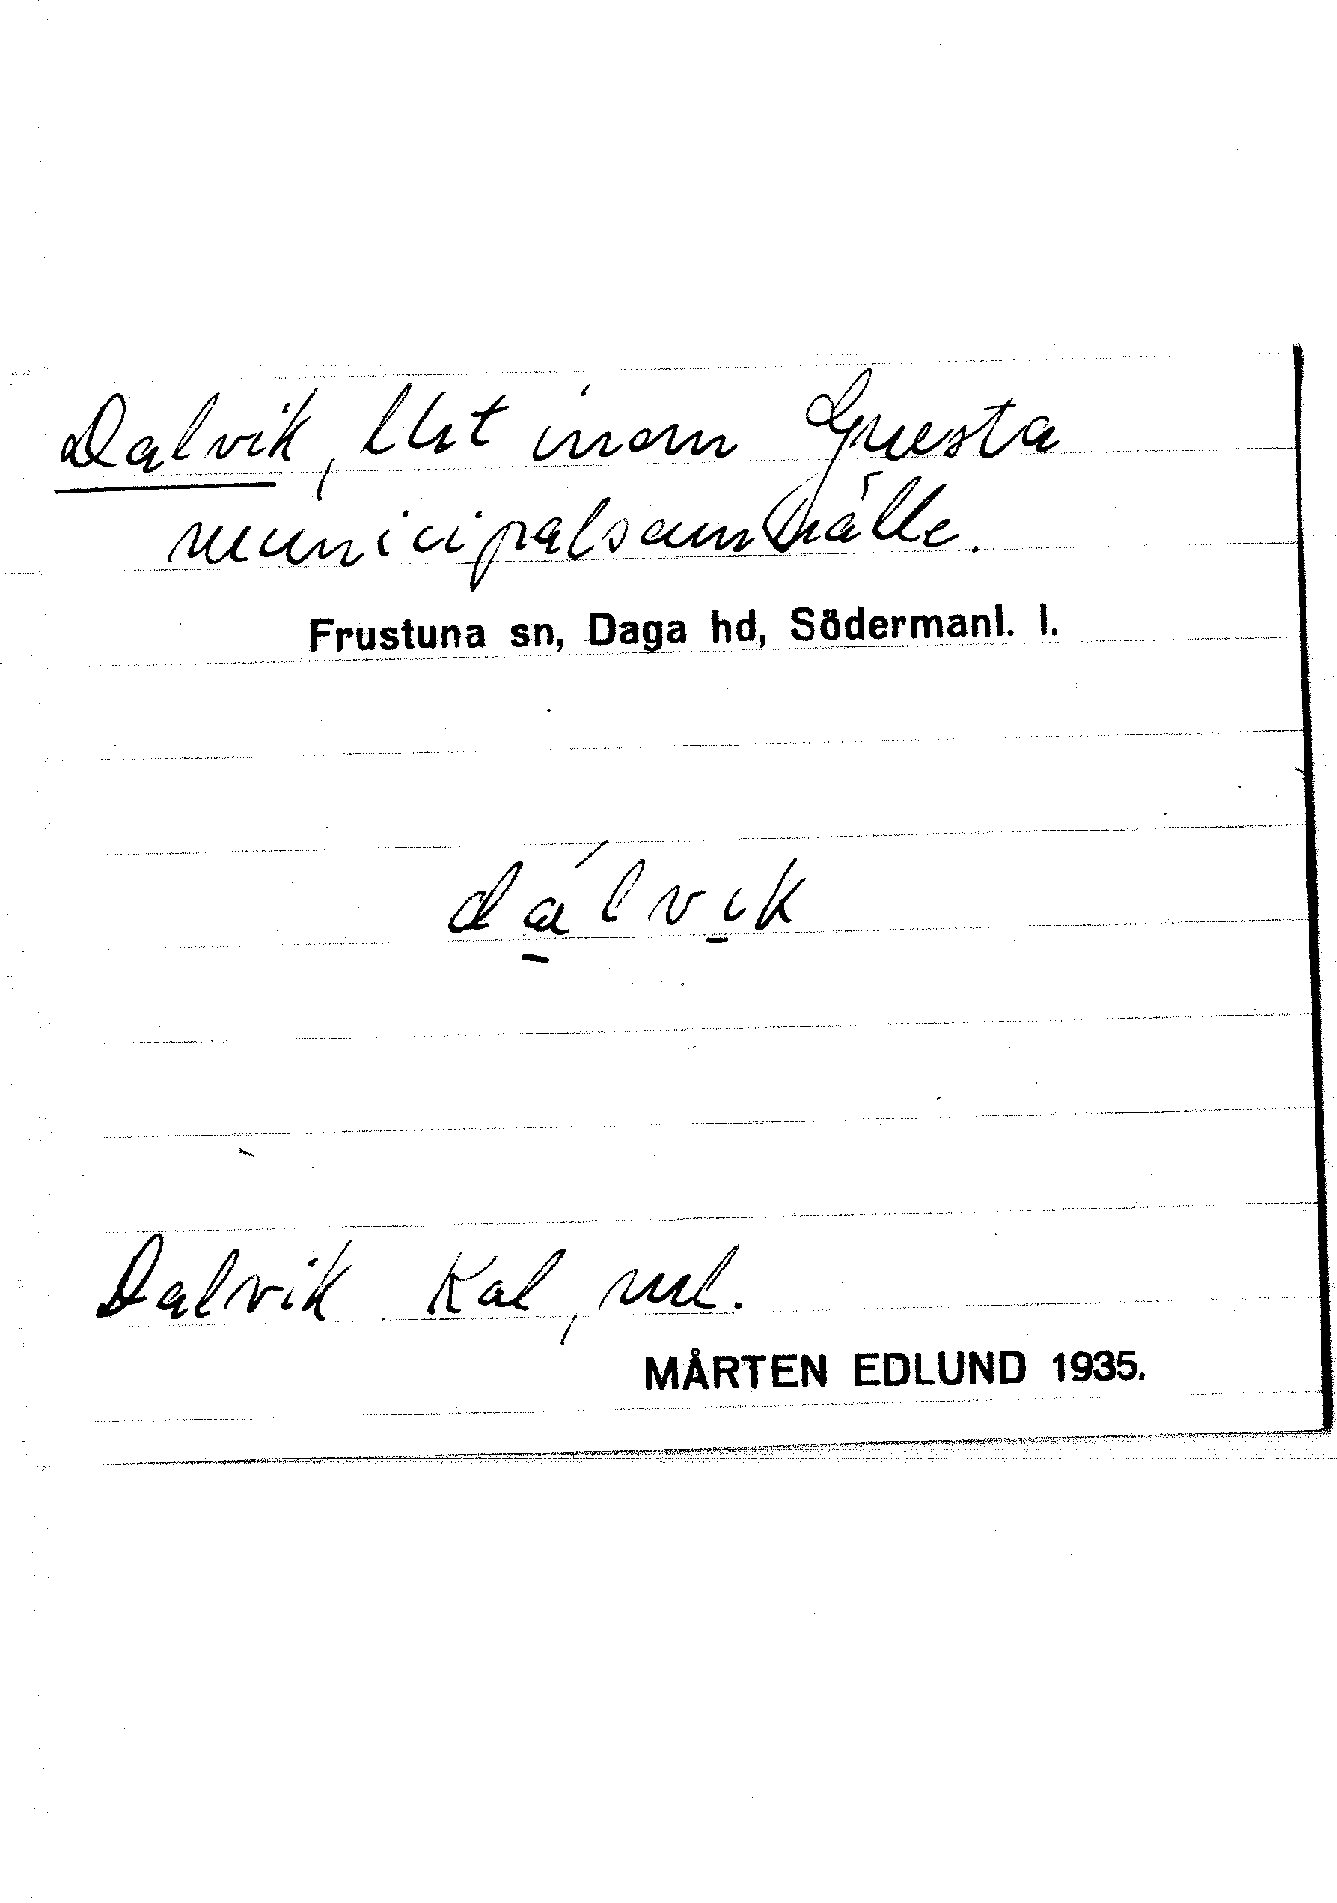 Dalvik, lht inom Gnesta
municipalsamhälle.
Frustuna sn, Daga hd, Södermanl. l.
dálvik
Dalvik Kal, ml.
MÅRTEN EDLUND 1935.